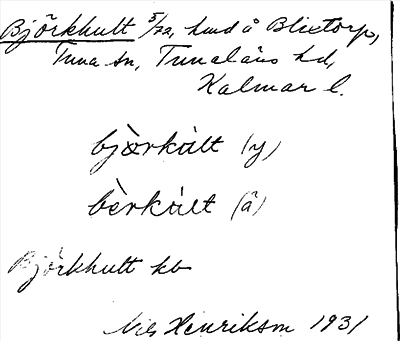 Björkhult 5/72, hmd å Blixtorp,
Tuna sn, Tunaläns hd,
Kalmar l.
bjòrkúlt (y)
bèrkúlt (ä)
Björkhult kb
Nils Henrikson 1931